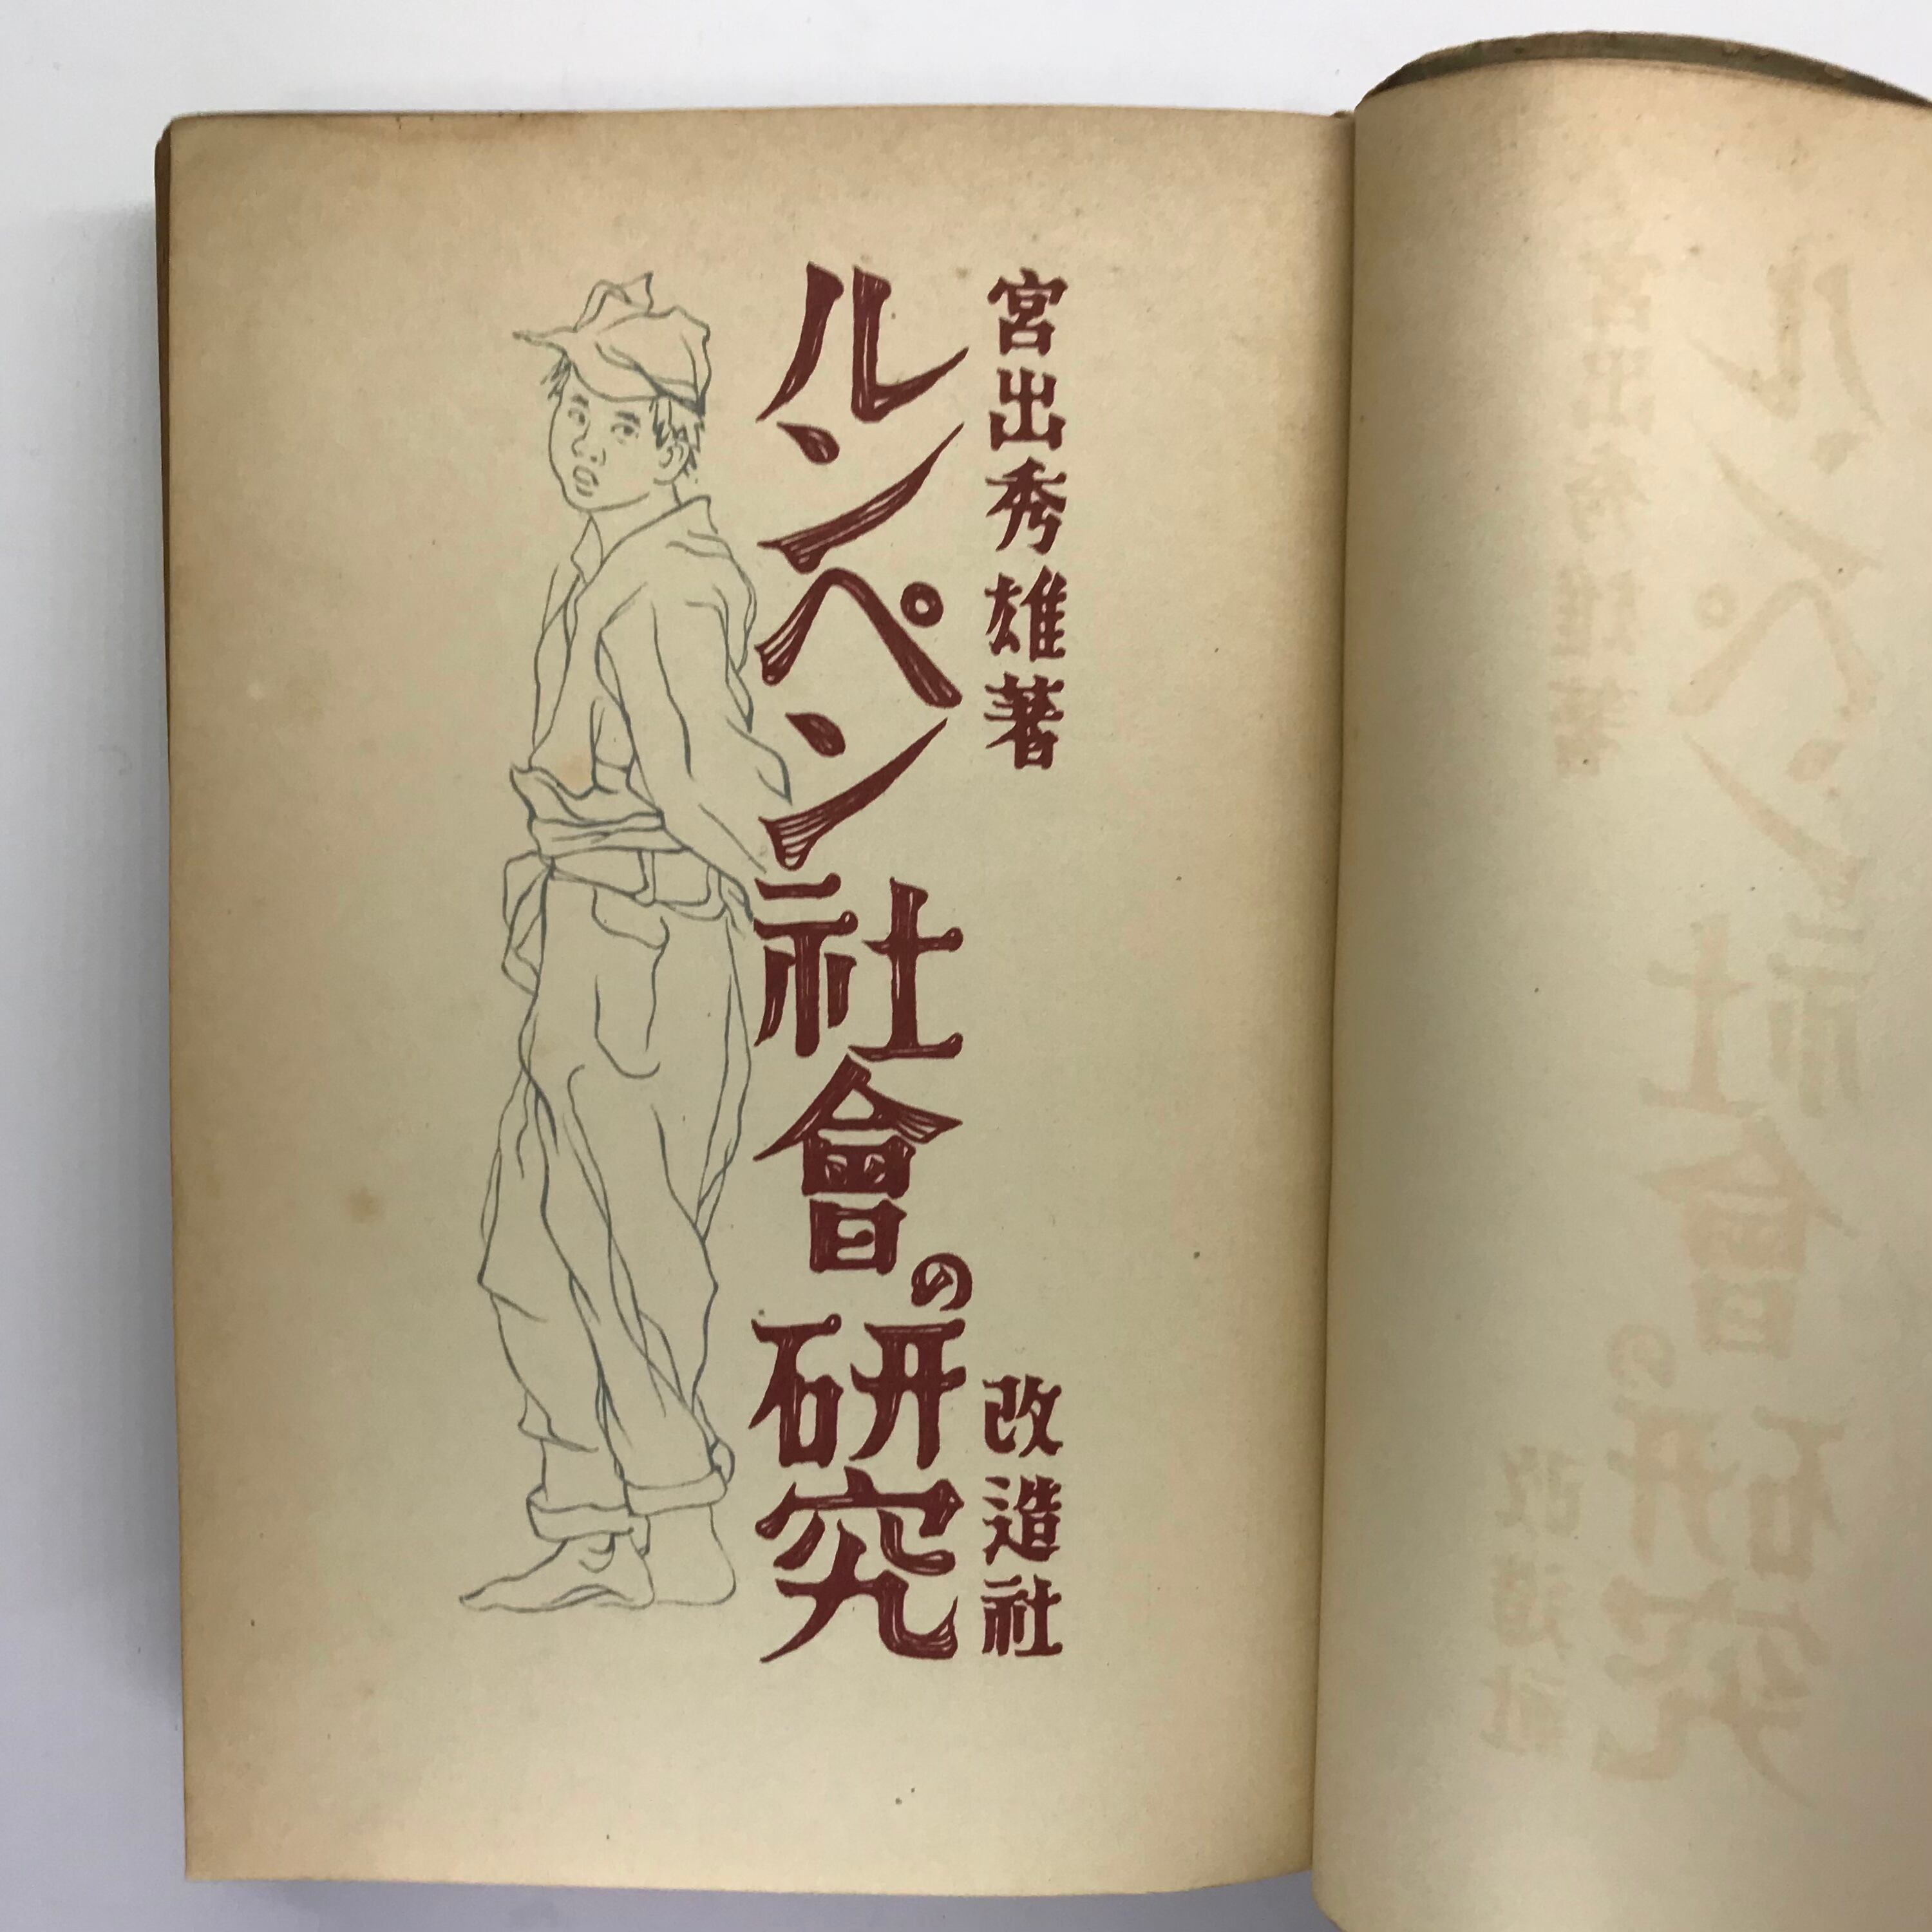 宮出秀雄著
ルンペン社會の研究
改造社